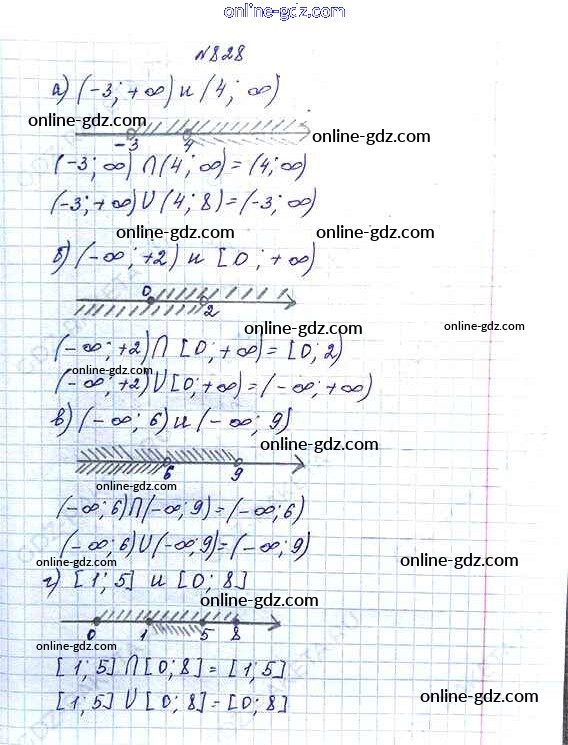 online-gdz.com
№828
а) (-3; +∞) и (4; ∞)
online-gdz.com
online-gdz.com
-3 4
(-3; ∞) ∩ (4; ∞) = (4; ∞)
(-3; +∞) ∪ (4; 8) = (-3; ∞)
online-gdz.com online-gdz.com
б) (-∞; +2) и [0; +∞)
0 2
online-gdz.com online-gdz.com
(-∞; +2) ∩ [0; +∞) = [0; 2)
online-gdz.com
(-∞; +2) ∪ [0; +∞) = (-∞; +∞)
в) (-∞; 6) и (-∞; 9)
online-gdz.com
6 9
online-gdz.com
(-∞; 6) ∩ (-∞; 9) = (-∞; 6)
(-∞; 6) ∪ (-∞; 9) = (-∞; 9)
online-gdz.com
г) [1; 5] и [0; 8]
online-gdz.com
0 1 5 8
online-gdz.com
[1; 5] ∩ [0; 8] = [1; 5]
[1; 5] ∪ [0; 8] = [0; 8]
online-gdz.com